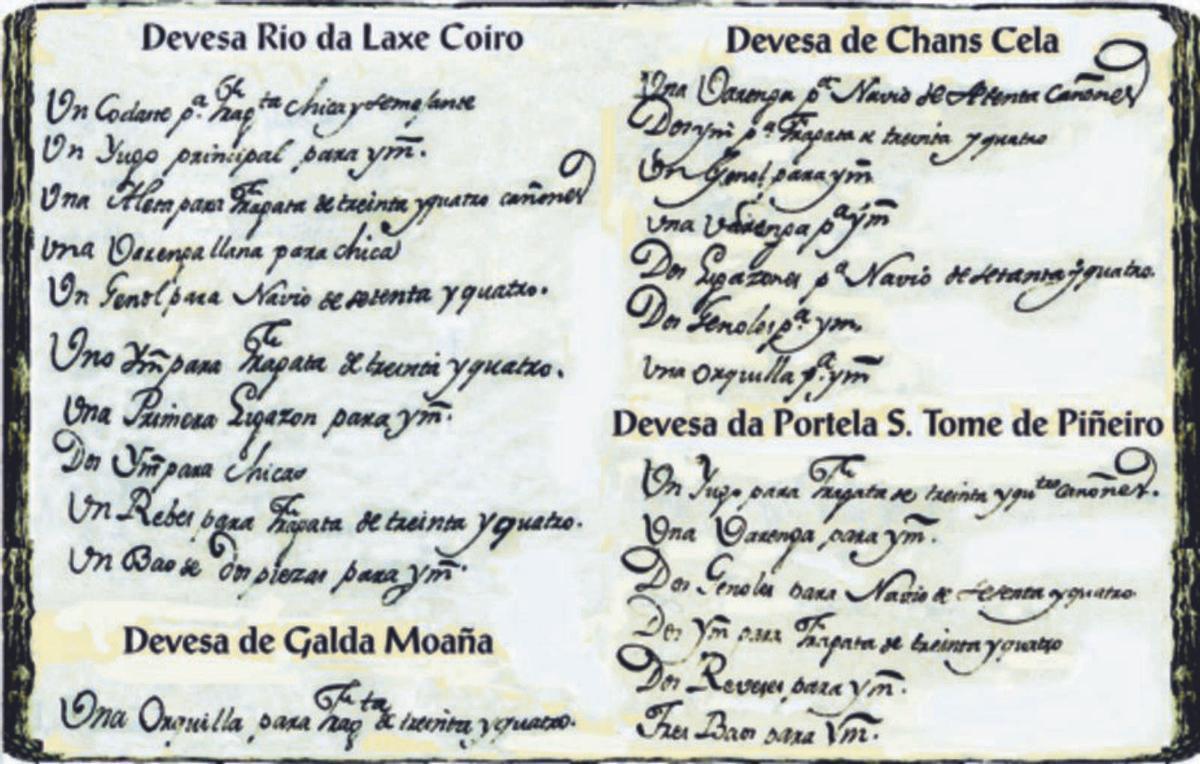 Devesa Rio da Laxe Coiro
Un Codaste pª. Fragta chica y semejante
Un Yugo principal para ym̃.
Una Aleta para Fragata de treinta y quatro cañones
Una Varenga llana para chica
Un Genol para Navio de setenta y quatro.
Uno Ym̃ para Fragata de treinta y quatro.
Una Primera Ligazon para ym̃.
Dos Ym̃ para chicas
Un Rebes para Fragata de treinta y quatro.
Un Bao de dos piezas para ym̃.
Devesa de Galda Moaña
Una Orquilla para Fragta de treinta y quatro.
Devesa de Chans Cela
Una Varenga pª Navio de setenta Cañones
Dos ym̃ pª Fragata de treinta y quatro
Un Genol para ym̃
Una Varenga pª ym̃
Dos Ligazones pª Navio de setenta y quatro.
Dos Genoles pª. ym̃.
Una Orquilla pª. ym̃
Devesa da Portela S. Tome de Piñeiro
Un Yugo para Fragata de treinta y qutro cañones.
Una Varenga para ym̃.
Dos Genoles para Navio de setenta y quatro
Dos Ym̃ para Fragata de treinta y quatro
Dos Reveses para ym̃.
Tres Baos para Ym̃.